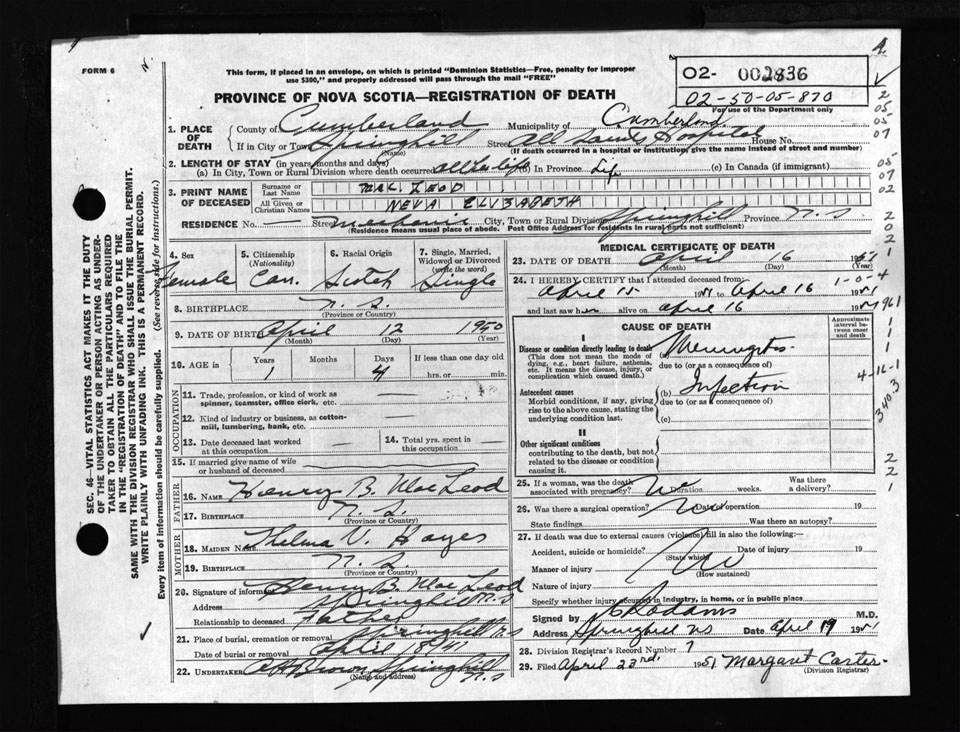 FORM 6
This form, if placed in an envelope, on which is printed "Dominion Statistics—Free, penalty for improper
use $300," and properly addressed will pass through the mail "FREE"
02- 002836
02-50-05-870
For use of the Department only
PROVINCE OF NOVA SCOTIA—REGISTRATION OF DEATH
1. PLACE OF DEATH
County of Cumberland Municipality of Cumberland
If in City or Town Springhill Street All Saints Hospital House No.
(Name) (If death occurred in a hospital or institution, give the name instead of street and number)
2. LENGTH OF STAY (in years, months and days)
(a) In City, Town or Rural Division where death occurred all its life (b) In Province Life (c) In Canada (if immigrant)
3. PRINT NAME OF DECEASED
Surname or Last Name MAC LEOD
All Given or Christian Names NEVA ELIZABETH
RESIDENCE No. — Street Mechanic City, Town or Rural Division Springhill Province N.S
(Residence means usual place of abode. Post Office Address for residents in rural parts not sufficient)
4. Sex Female
5. Citizenship (Nationality) Can.
6. Racial Origin Scotch
7. Single, Married, Widowed or Divorced (write the word) Single
8. BIRTHPLACE N.S.
(Province or Country)
9. DATE OF BIRTH April 12 1950
(Month) (Day)
10. AGE in Years 1 Months Days 4 If less than one day old
hrs. or min.
OCCUPATION
11. Trade, profession, or kind of work as spinner, teamster, office clerk, etc. —
12. Kind of industry or business, as cotton-mill, lumbering, bank, etc.
13. Date deceased last worked at this occupation —
14. Total yrs. spent in this occupation —
15. If married give name of wife or husband of deceased
FATHER
16. NAME Henry B. MacLeod
17. BIRTHPLACE N.S.
(Province or Country)
MOTHER
18. MAIDEN NAME Thelma V. Hayes
19. BIRTHPLACE N.S.
(Province or Country)
20. Signature of informant Henry B. MacLeod
Address Springhill N.S
Relationship to deceased Father
21. Place of burial, cremation or removal Springhill N.S
Date of burial or removal April 18
22. UNDERTAKER Brown Springhill N.S
(Name and address)
MEDICAL CERTIFICATE OF DEATH
23. DATE OF DEATH April 16 1951
(Month) (Day) (Year)
24. I HEREBY CERTIFY that I attended deceased from:
April 15 1951 to April 16 1951
and last saw her alive on April 16 1951
CAUSE OF DEATH
Approximate interval between onset and death
I
Disease or condition directly leading to death (a) Meningitis
(This does not mean the mode of dying, e.g., heart failure, asthenia, etc. It means the disease, injury, or complication which caused death.)
due to (or as a consequence of)
Antecedent causes (b) Infection
Morbid conditions, if any, giving rise to the above cause, stating the underlying condition last.
due to (or as a consequence of)
(c)
II
Other significant conditions
contributing to the death, but not related to the disease or condition causing it.
25. If a woman, was the death associated with pregnancy? No Duration weeks. Was there a delivery?
26. Was there a surgical operation? No Date of operation 19
State findings Was there an autopsy?
27. If death was due to external causes (violence) fill in also the following:
Accident, suicide or homicide? Date of injury 19
(State which)
Manner of injury No
(How sustained)
Nature of injury
Specify whether injury occurred in industry, in home, or in public place
Signed by M.D.
Address Springhill NS Date April 19 1951
28. Division Registrar's Record Number 7
29. Filed April 23rd. 1951 Margaret Carter
(Division Registrar)
SEC. 46—VITAL STATISTICS ACT MAKES IT THE DUTY
OF THE UNDERTAKER OR PERSON ACTING AS UNDER-
TAKER TO OBTAIN ALL THE PARTICULARS REQUIRED
IN THE "REGISTRATION OF DEATH" AND TO FILE THE
SAME WITH THE DIVISION REGISTRAR WHO SHALL ISSUE THE BURIAL PERMIT.
WRITE PLAINLY WITH UNFADING INK. THIS IS A PERMANENT RECORD.
Every item of information should be carefully supplied. (See reverse side for instructions.)